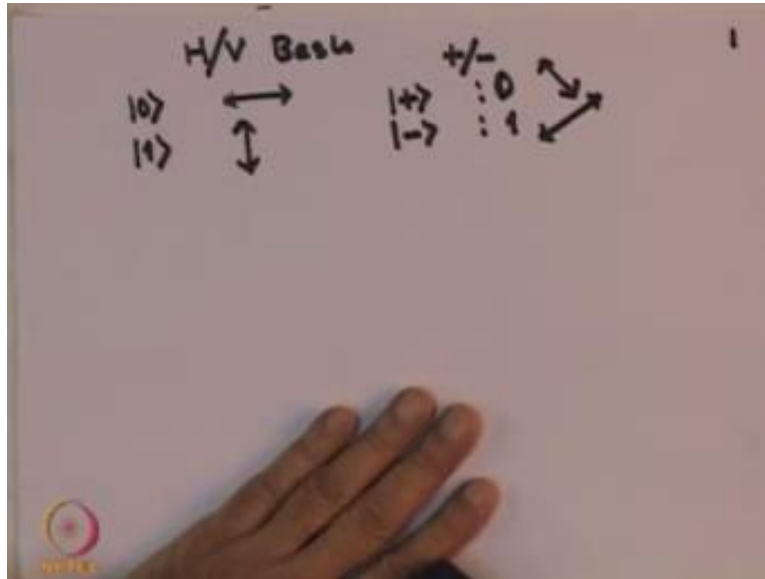 H/V Basis
|0⟩ ↔
|1⟩ ↕
+/-
|+⟩ : 0
|-⟩ : 1
1
NPTEL